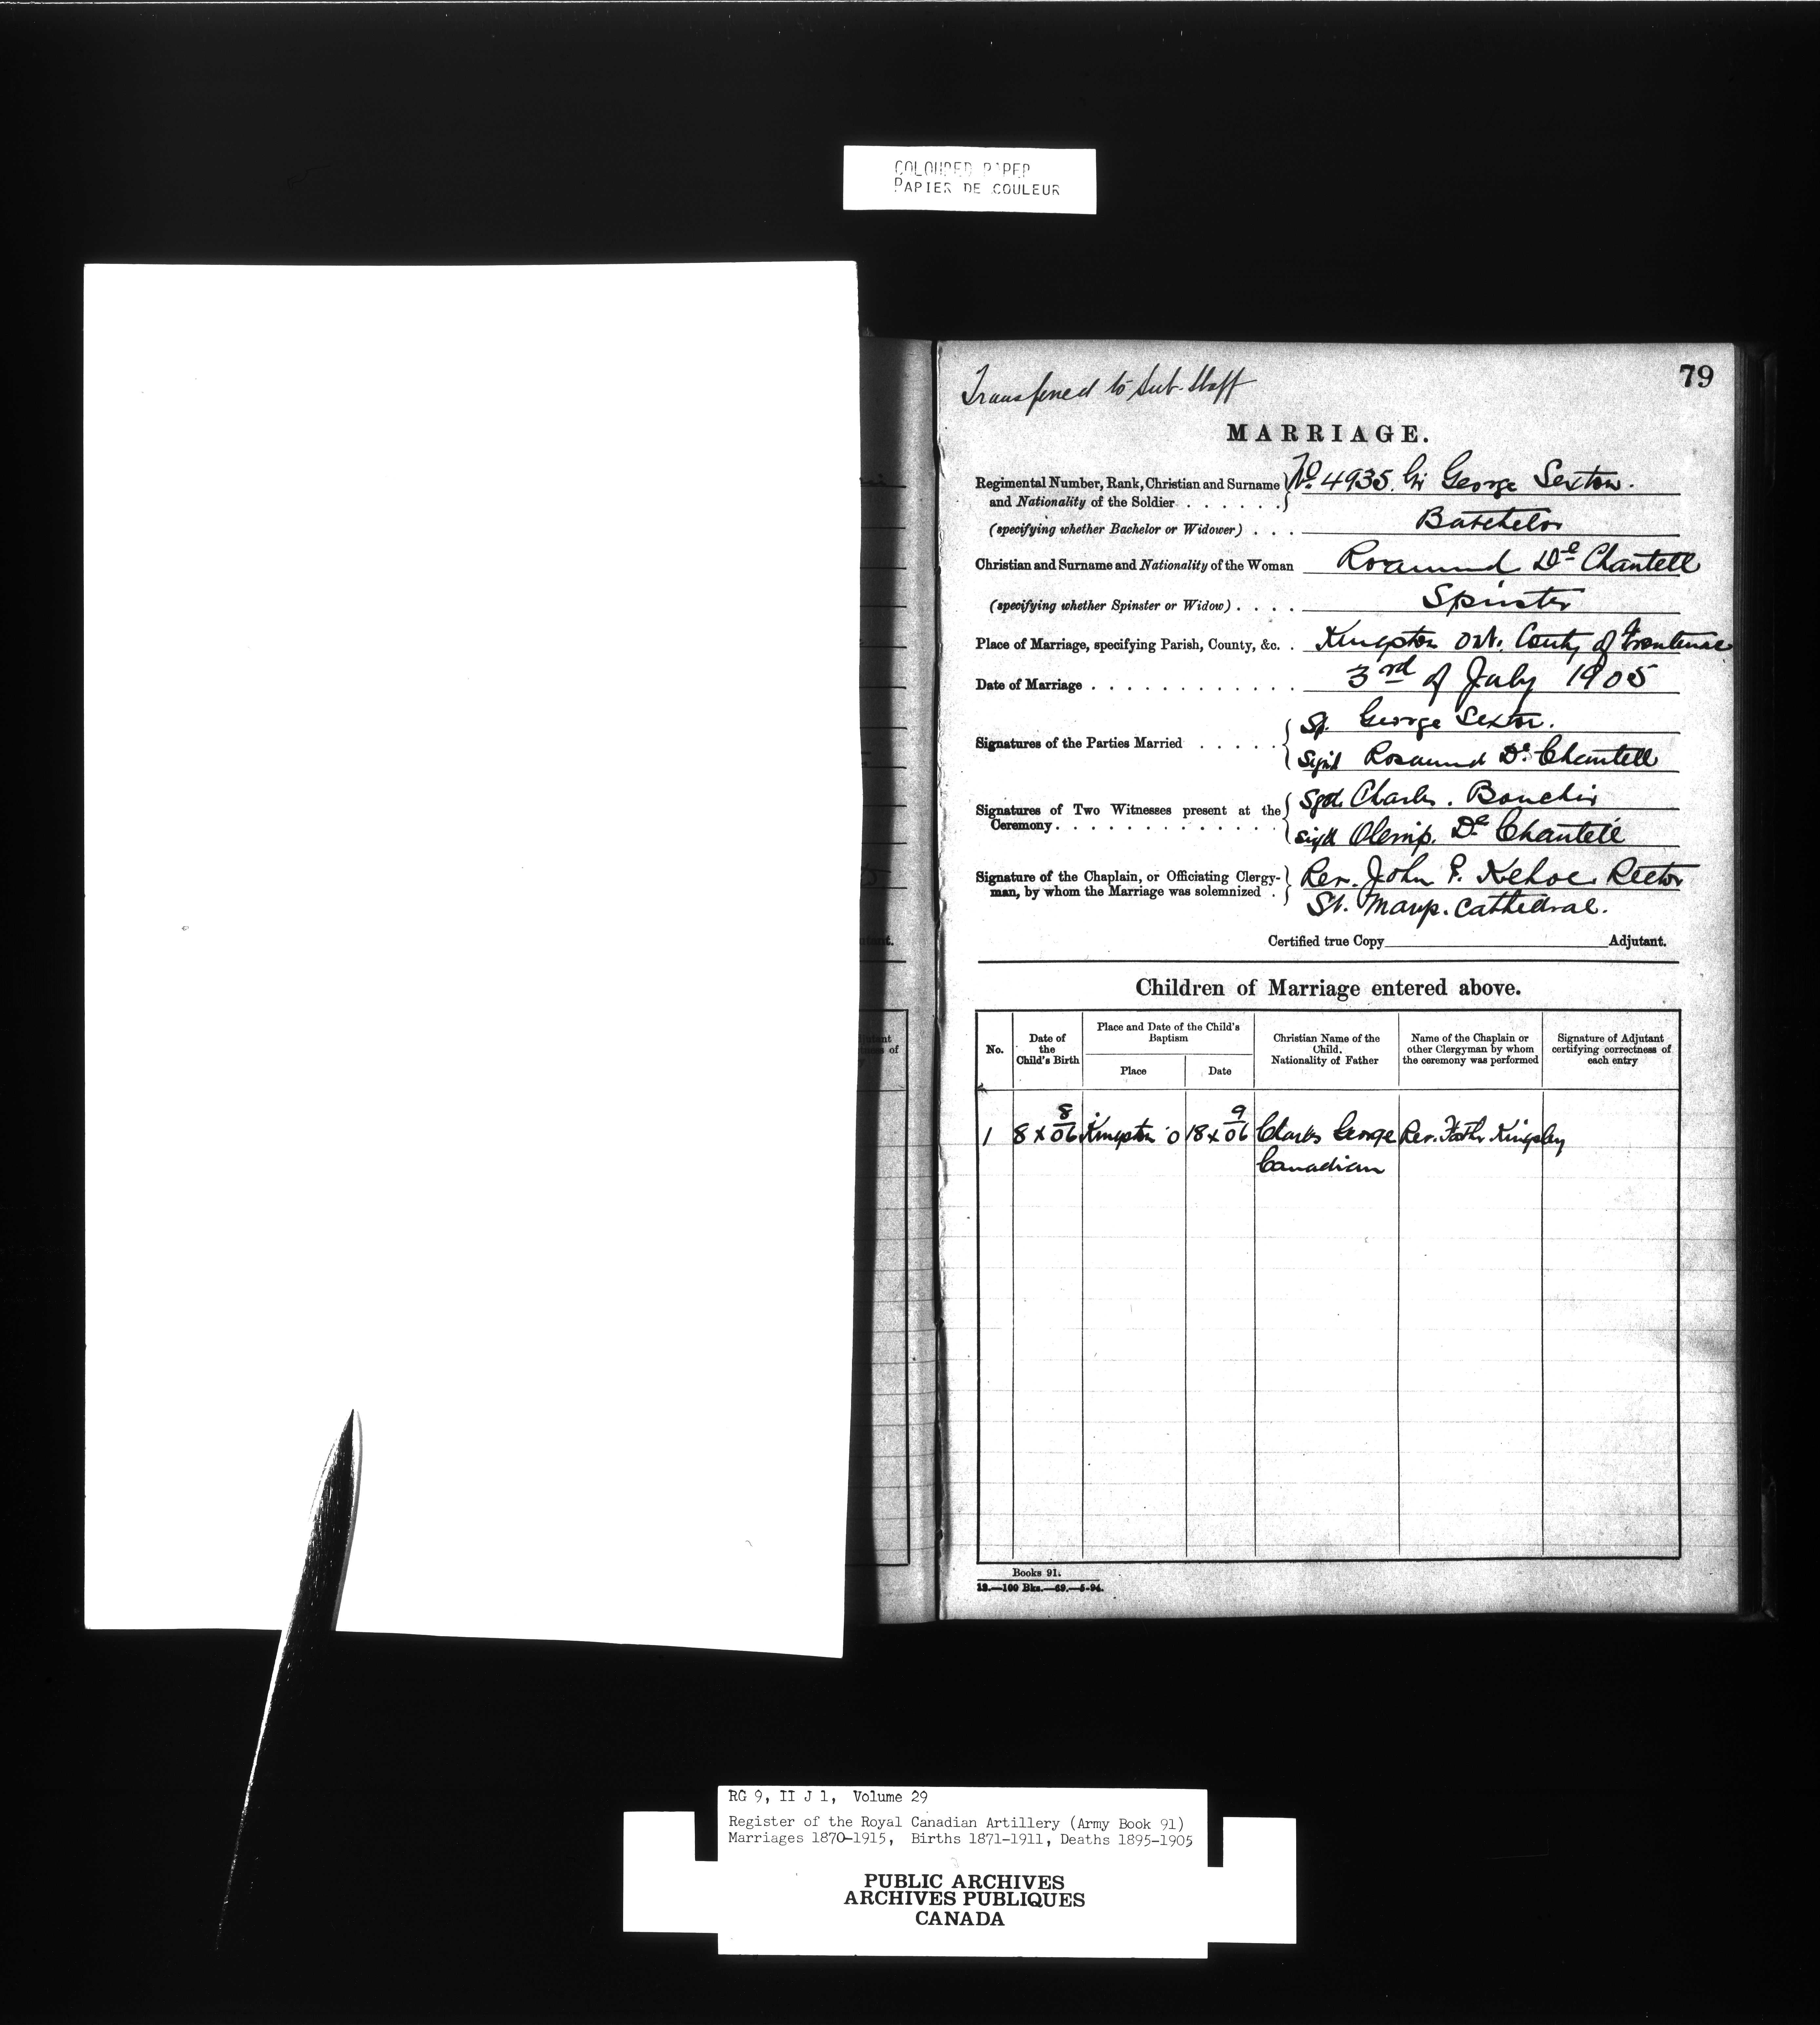 COLOURED PAPER
PAPIER DE COULEUR
79
Transferred to Sub-Staff
MARRIAGE.
Regimental Number, Rank, Christian and Surname and Nationality of the Soldier . . . . . . No. 4935. Gr George Sexton.
(specifying whether Bachelor or Widower) . . . Batchelor
Christian and Surname and Nationality of the Woman Rosamund De Chantell
(specifying whether Spinster or Widow) . . . . Spinster
Place of Marriage, specifying Parish, County, &c. . Kingston Ont. County of Frontenac
Date of Marriage . . . . . . . . . . . . 3rd of July 1905
Signatures of the Parties Married . . . . . George Sexton.
Sigd Rosamund De Chantell
Signatures of Two Witnesses present at the Ceremony. . . . . . . . . . . . . Sgd. Charles.
Sigd Olemp. De Chantell
Signature of the Chaplain, or Officiating Clergyman, by whom the Marriage was solemnized . Rev. John P. Kehoe Rector
St. Marys. Cathedral.
Certified true Copy Adjutant.
Children of Marriage entered above.
No.
Date of the Child's Birth
Place and Date of the Child's Baptism
Place
Date
Christian Name of the Child. Nationality of Father
Name of the Chaplain or other Clergyman by whom the ceremony was performed
Signature of Adjutant certifying correctness of each entry
1 8 x 8/06 Kingston O 18 x 9/06 Charles George Rev. Father Kingsley
Canadian
Books 91.
12.—100 Bks.—69.—5-94.
RG 9, II J 1, Volume 29
Register of the Royal Canadian Artillery (Army Book 91)
Marriages 1870-1915, Births 1871-1911, Deaths 1895-1905
PUBLIC ARCHIVES
ARCHIVES PUBLIQUES
CANADA